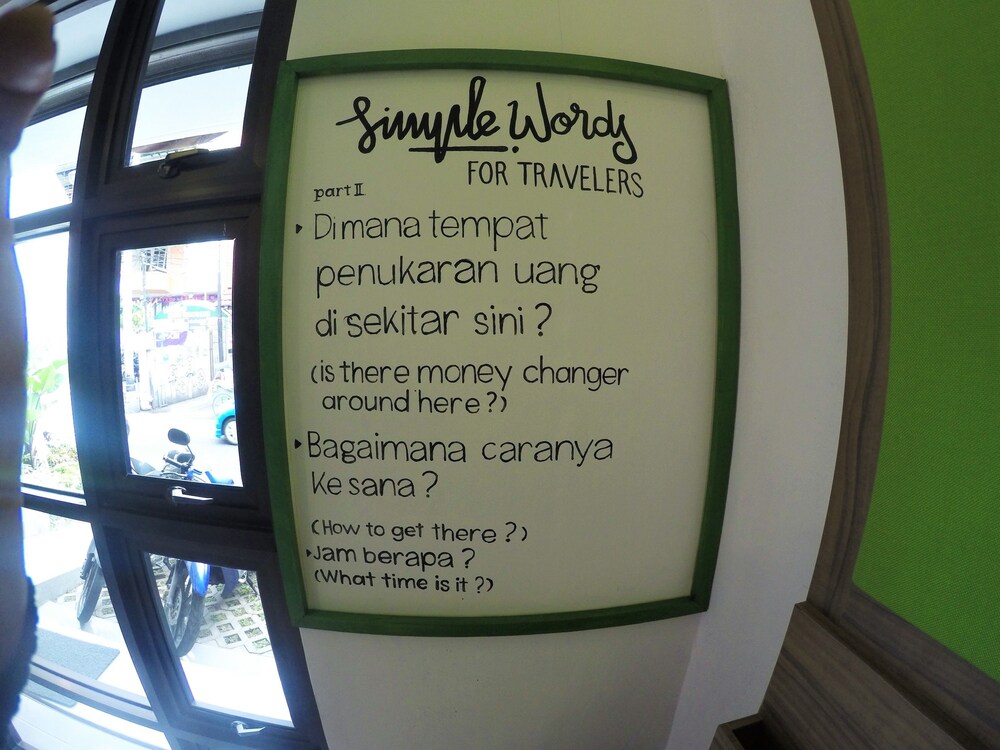 Simple Words
FOR TRAVELERS
part II
Dimana tempat
penukaran uang
di sekitar sini?
(is there money changer
around here?)
Bagaimana caranya
Ke sana?
(How to get there?)
Jam berapa?
(What time is it?)